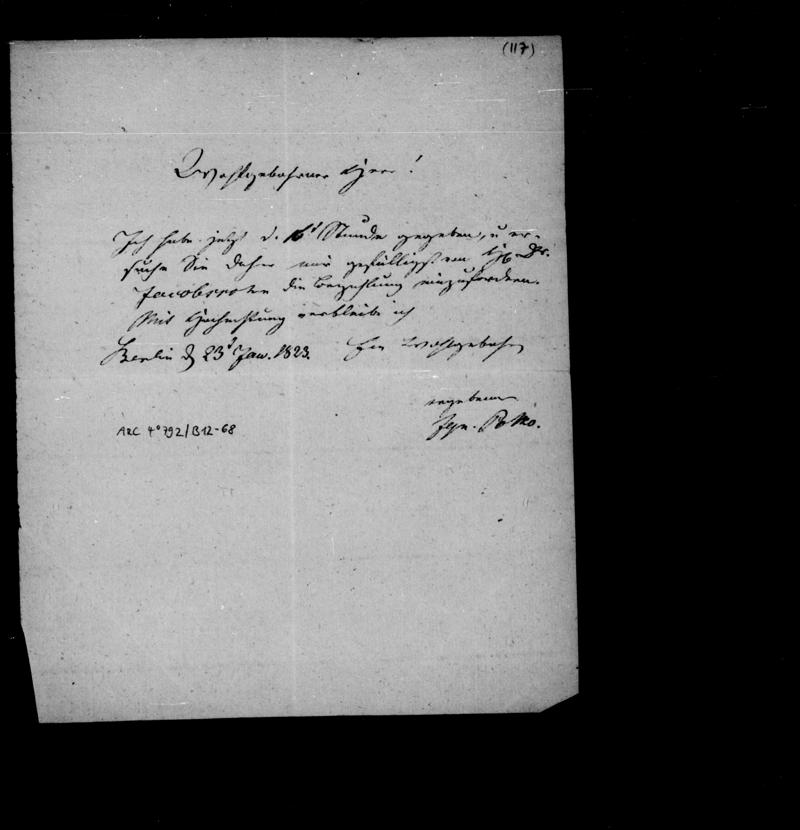 (117)
Wohlgebohrner Herr!
Ich habe jetzt d. 16t Stunde gegeben, u er-
suche Sie daher mir gefälligst von H. Dr.
Jacobssohn die Bezahlung einzufordern.
Mit Hochachtung verbleibe ich
Berlin d 23t Jan. 1823. Ew Wohlgebohren
ergebener
ARC 4° 792/B12-68